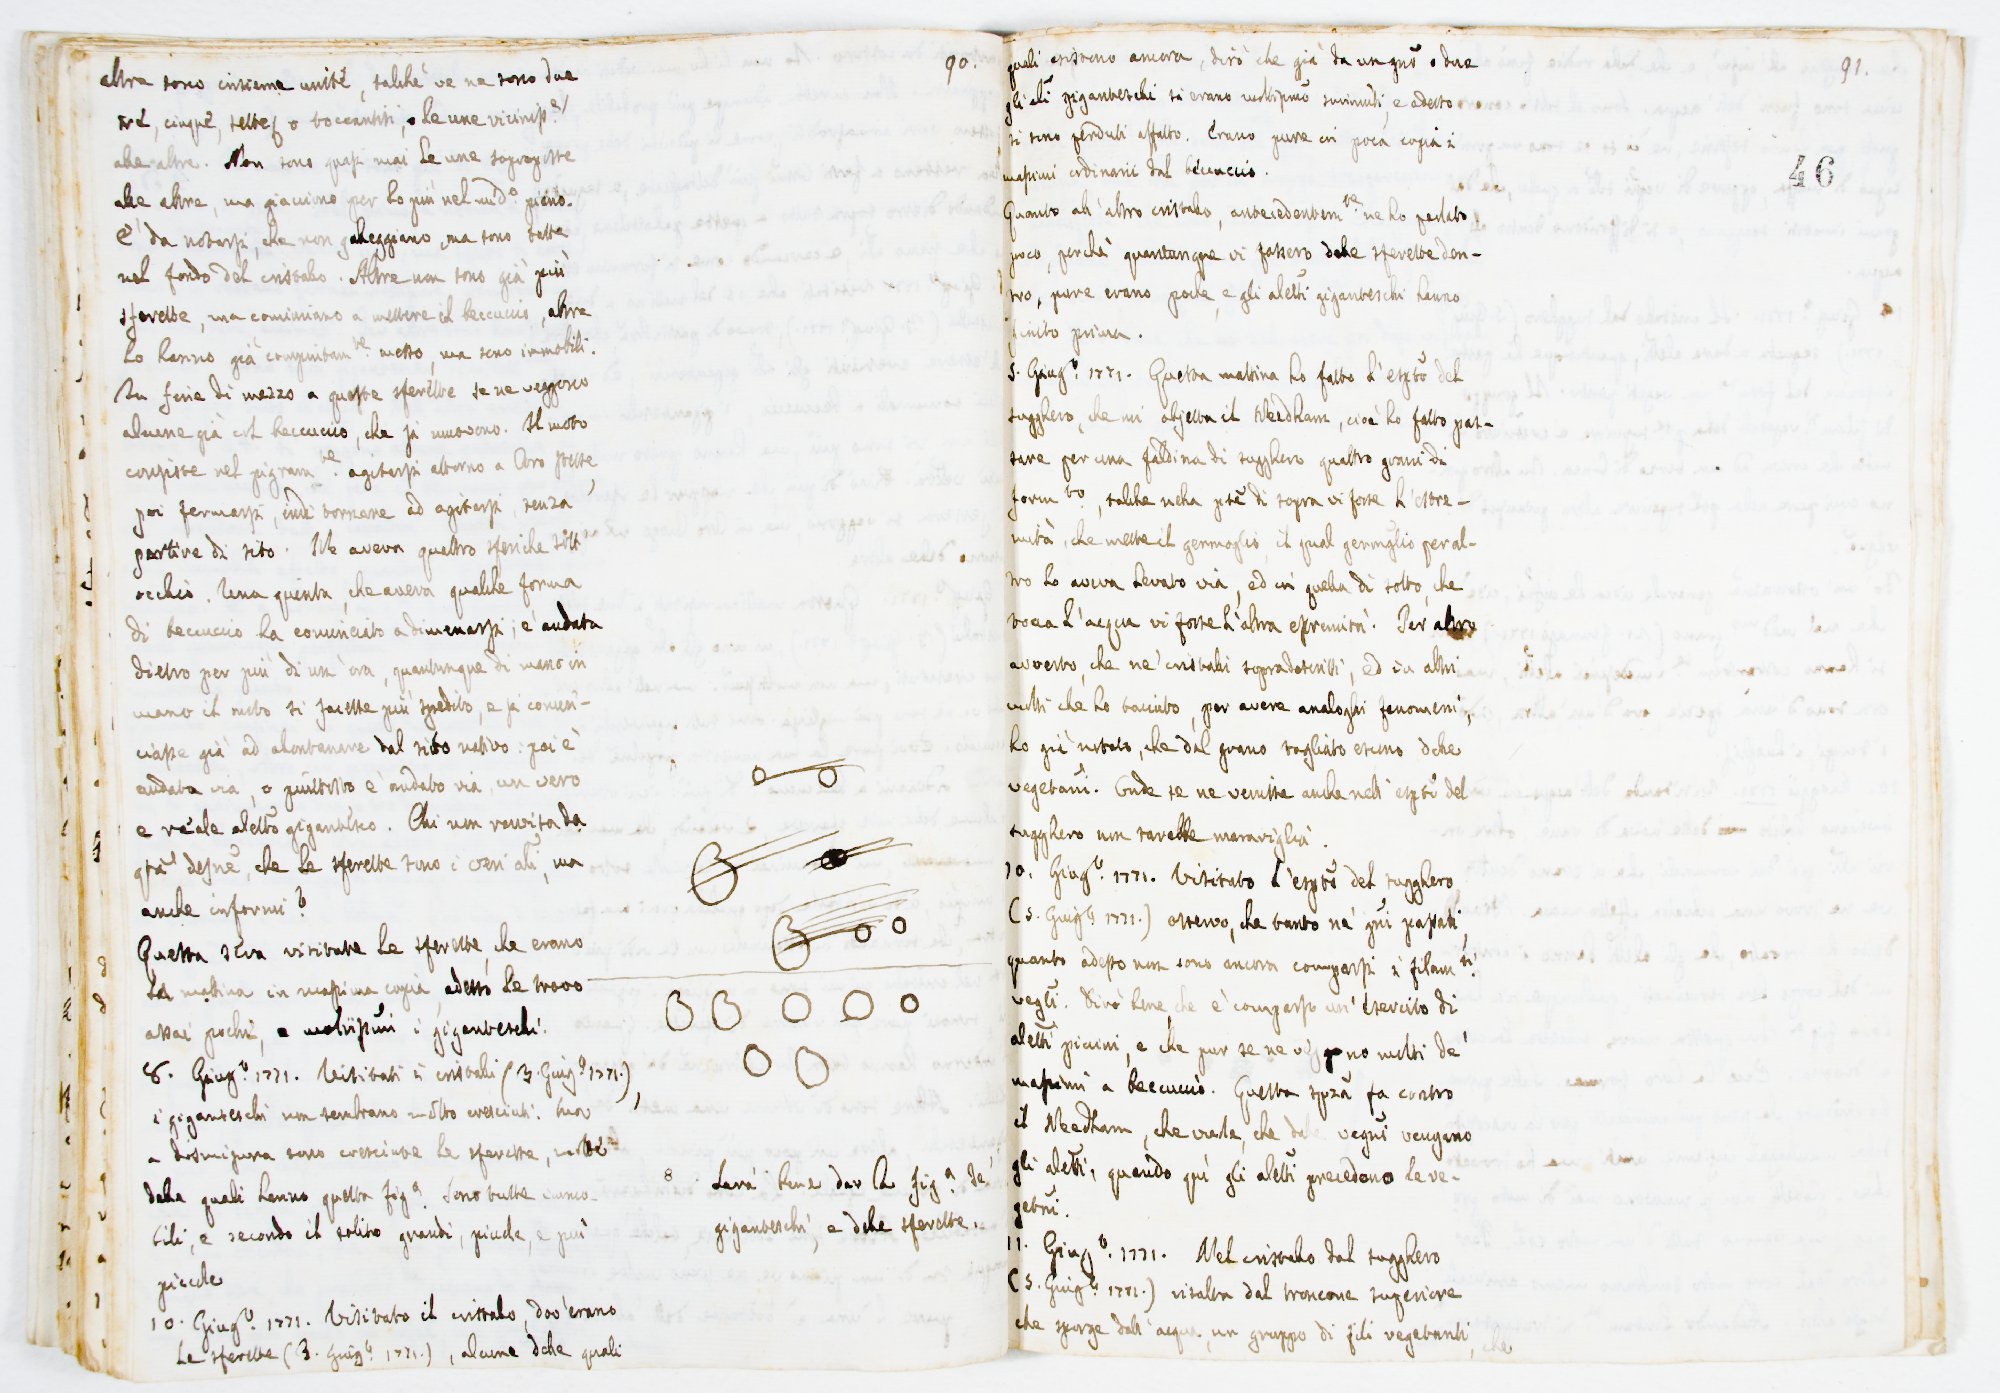 90.
altre sono insieme unite, talché ve ne sono due
tré, cinque, sette, o toccantisi, o le une vicinissime
alle altre. Non sono quasi mai le une sopraposte
alle altre, ma giaciono per lo più nel med.º piano.
E' da notarsi, che non galleggiano, ma sono tutte
nel fondo del cristallo. Altre non sono già più
sferette, ma cominciano a mettere il beccuccio, altre
lo hanno già compiutam.te messo, ma sono immobili.
In fine di mezzo a queste sferette se ne veggono
alcune già col beccuccio, che si muovono. Il moto
consiste nel pigram.te agitarsi attorno a loro stesse,
poi fermarsi, indi tornare ad agitarsi, senza
partire di sito. Ne aveva quattro sferiche sott'
occhio. Una quinta, che aveva qualche forma
di beccuccio ha cominciato a dimenarsi, e è andata
dietro per più di un' ora, quantunque di mano in
mano il moto si facesse più spedito, e si comin-
ciasse già ad alontanare dal sito nativo: poi è
andata via, o piuttosto è andato via, un vero
e reale aletto gigantesco. Chi non ravvisa da
che le sferette sono i veri ali, ma
anche informi?
Questa sera visitate le sferette, che erano
la matina in massima copia, adesso le trovo
assai pochi, e i giganteschi.
8. Giug.º 1771. Visitati i cristalli (3. Giug.º 1771.),
i giganteschi non sembrano molto cresciuti. Ma
a dismisura sono cresciute le sferette,
dalla quali hanno questa fig.a Sono tutte immo-
bili, e secondo il solito grandi, picciole, e più
picciole
10. Giug.º 1771. Visitato il cristallo, dov'erano
le sferette (3. Giug.º 1771.), alcune delle quali
8 Sarà bene dar la fig.a de'
giganteschi, e delle sferette.
91.
46
quali esistono ancora, dirò che già da un giorno o due
gli ali giganteschi si erano sminuiti, e adesso
si sono perduti affatto. Erano pure in poca copia i
massimi ordinarii dal beccuccio.
Quanto all'altro cristallo, antecedentem.te ne ho parlato
poco, perchè quantunque vi fossero delle sferette den-
tro, pure erano poche, e gli aletti giganteschi hanno
finito prima.
5. Giug.º 1771. Questa mattina ho fatto l'esptō del
sugghero, che mi objetta il Needham, cioè ho fatto pas-
sare per una faldina di sugghero quattro grani di
form.to, talche nella pte di sopra vi fosse l'estre-
mità, che mette il germoglio, il qual germoglio peral-
tro ho aveva levato via, ed in quella di sotto, che
tocca l'acqua vi fosse l'altra estremità. Per altro
avverto, che ne' cristalli sopradescritti, ed in altri
molti che ho taciuto, per avere analoghi fenomeni,
ho già notato, che dal grano tagliato escono delle
vegetanī. Onde se ne venisse anche nell' esptō del
sugghero non sarebbe maraviglia.
10. Giug.º 1771. Visitato l'esptō del sugghero
(5. Giug.º 1771.) osservo, che tanto ne' gnī passati,
quanto adesso non sono ancora comparsi i filam.ti
vegtī. Dirò bene, che è comparso un' esercito di
aletti piccini, e che pur se ne veggono molti de'
massimi a beccuccio. Questa spzā fa contro
il Needham, che vuole, che dalle vegnī vengano
gli aletti, quando quì gli aletti precedono le ve-
getnī.
11. Giug.º 1771. Nel cristallo dal sugghero
(5. Giug.º 1771.) risalta dal troncone superiore
che sporge dall' acqua, un gruppo di fili vegetanti, che